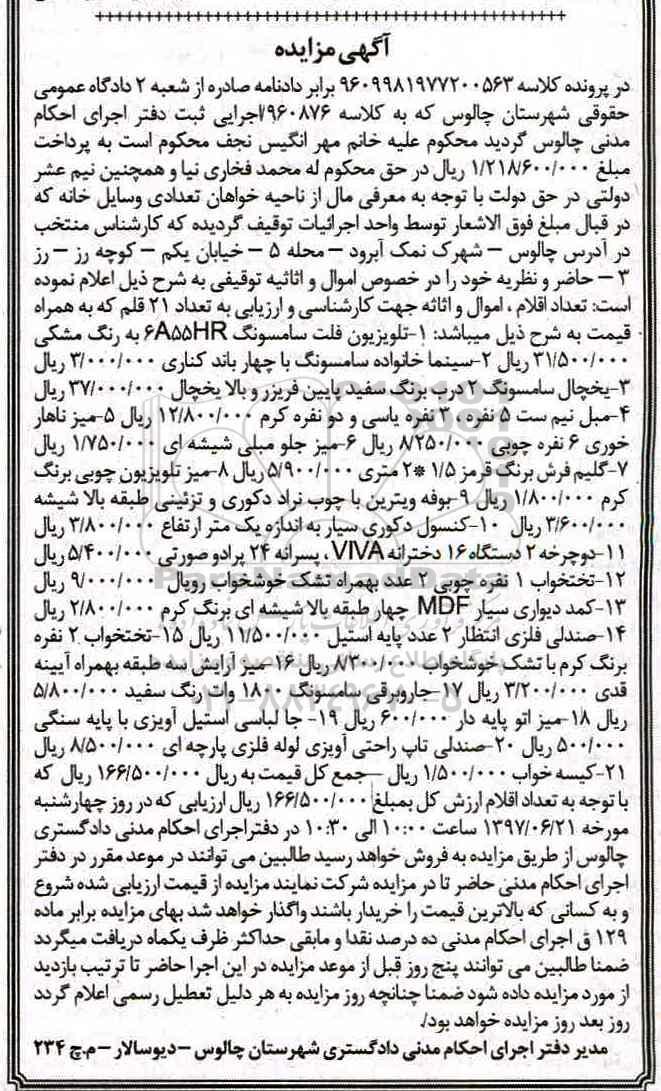 آگهی مزایده
در پرونده کلاسه ۹۶۰۹۹۸۱۹۷۷۲۰۰۵۶۳ برابر دادنامه صادره از شعبه ۲ دادگاه عمومی
حقوقی شهرستان چالوس که به کلاسه ۹۶۰۸۷۶/اجرایی ثبت دفتر اجرای احکام
مدنی چالوس گردید محکوم علیه خانم مهر انگیس نجف محکوم است به پرداخت
مبلغ ۱/۲۱۸/۶۰۰/۰۰۰ ریال در حق محکوم له محمد فخاری نیا و همچنین نیم عشر
دولتی در حق دولت با توجه به معرفی مال از ناحیه خواهان تعدادی وسایل خانه که
در قبال مبلغ فوق الاشعار توسط واحد اجرائیات توقیف گردیده که کارشناس منتخب
در آدرس چالوس – شهرک نمک آبرود – محله ۵ – خیابان یکم – کوچه رز – رز
۳ – حاضر و نظریه خود را در خصوص اموال و اثاثیه توقیفی به شرح ذیل اعلام نموده
است: تعداد اقلام ، اموال و اثاثه جهت کارشناسی و ارزیابی به تعداد ۲۱ قلم که به همراه
قیمت به شرح ذیل میباشد: ۱-تلویزیون فلت سامسونگ ۶A۵۵HR به رنگ مشکی
۳۱/۵۰۰/۰۰۰ ریال ۲-سینما خانواده سامسونگ با چهار باند کناری ۳/۰۰۰/۰۰۰ ریال
۳-یخچال سامسونگ ۲ درب برنگ سفید پایین فریزر و بالا یخچال ۳۷/۰۰۰/۰۰۰ ریال
۴-مبل نیم ست ۵ نفره ۳۰ نفره یاسی و دو نفره کرم ۱۲/۸۰۰/۰۰۰ ریال ۵-میز ناهار
خوری ۶ نفره چوبی ۸/۲۵۰/۰۰۰ ریال ۶-میز جلو مبلی شیشه ای ۱/۷۵۰/۰۰۰ ریال
۷-گلیم فرش برنگ قرمز ۱/۵ *۲ متری ۵/۹۰۰/۰۰۰ ریال ۸-میز تلویزیون چوبی برنگ
کرم ۱/۸۰۰/۰۰۰ ریال ۹-بوفه ویترین با چوب نراد دکوری و تزئینی طبقه بالا شیشه
۳/۶۰۰/۰۰۰ ریال ۱۰-کنسول دکوری سیار به اندازه یک متر ارتفاع ۳/۸۰۰/۰۰۰ ریال
۱۱-دوچرخه ۲ دستگاه ۱۶ دخترانه VIVA ، پسرانه ۲۴ پرادو صورتی ۵/۴۰۰/۰۰۰ ریال
۱۲-تختخواب ۱ نفره چوبی ۲ عدد بهمراه تشک خوشخواب رویال ۹/۰۰۰/۰۰۰ ریال
۱۳-کمد دیواری سیار MDF چهار طبقه بالا شیشه ای برنگ کرم ۲/۸۰۰/۰۰۰ ریال
۱۴-صندلی فلزی انتظار ۲ عدد پایه استیل ۱۱/۵۰۰/۰۰۰ ریال ۱۵-تختخواب ۲ نفره
برنگ کرم با تشک خوشخواب ۸/۳۰۰/۰۰۰ ریال ۱۶-میز آرایش سه طبقه بهمراه آیینه
قدی ۳/۲۰۰/۰۰۰ ریال ۱۷-جاروبرقی سامسونگ ۱۸۰۰ وات رنگ سفید ۵/۸۰۰/۰۰۰
ریال ۱۸-میز اتو پایه دار ۶۰۰/۰۰۰ ریال ۱۹- جا لباسی استیل آویزی با پایه سنگی
۵۰۰/۰۰۰ ریال ۲۰-صندلی تاپ راحتی آویزی لوله فلزی پارچه ای ۸/۵۰۰/۰۰۰ ریال
۲۱-کیسه خواب ۱/۵۰۰/۰۰۰ ریال –جمع کل قیمت به ریال ۱۶۶/۵۰۰/۰۰۰ ریال که
با توجه به تعداد اقلام ارزش کل بمبلغ ۱۶۶/۵۰۰/۰۰۰ ریال ارزیابی که در روز چهارشنبه
مورخه ۱۳۹۷/۰۶/۲۱ ساعت ۱۰:۰۰ الی ۱۰:۳۰ در دفتر اجرای احکام مدنی دادگستری
چالوس از طریق مزایده به فروش خواهد رسید طالبین می توانند در موعد مقرر در دفتر
اجرای احکام مدنی حاضر تا در مزایده شرکت نمایند مزایده از قیمت ارزیابی شده شروع
و به کسانی که بالاترین قیمت را خریدار باشند واگذار خواهد شد بهای مزایده برابر ماده
۱۲۹ ق اجرای احکام مدنی ده درصد نقدا و مابقی حداکثر ظرف یکماه دریافت میگردد
ضمنا طالبین می توانند پنج روز قبل از موعد مزایده در این اجرا حاضر تا ترتیب بازدید
از مورد مزایده داده شود ضمنا چنانچه روز مزایده به هر دلیل تعطیل رسمی اعلام گردد
روز بعد روز مزایده خواهد بود/.
مدیر دفتر اجرای احکام مدنی دادگستری شهرستان چالوس –دیوسالار – م.چ ۲۳۴